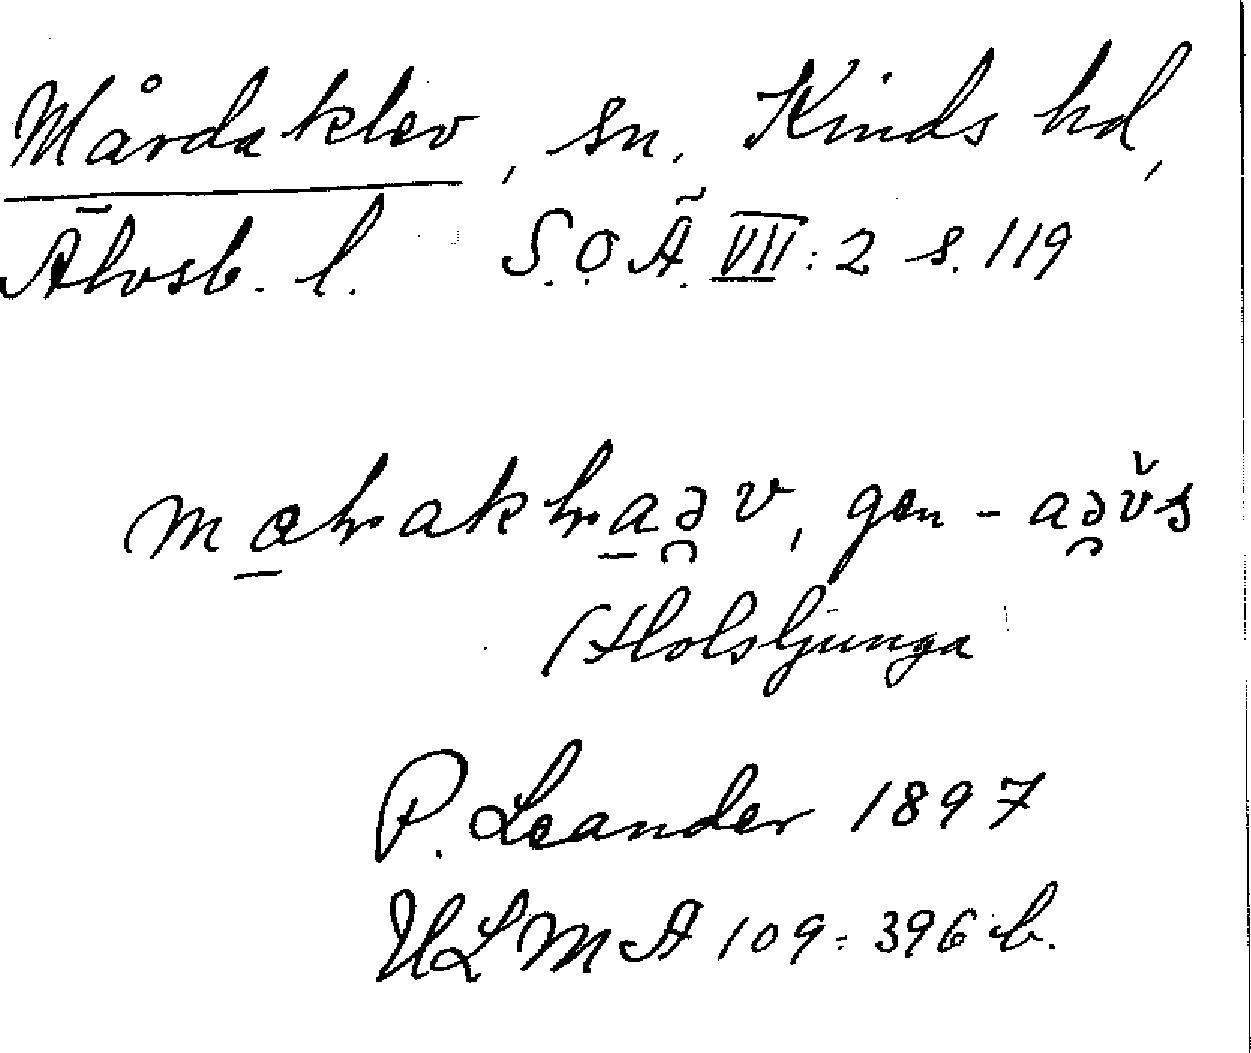 Mårdaklev, sn. Kinds hd,
Älvsb. l. S.O.Ä. VII: 2 s. 119
gen
(Holsljunga
P. Leander 1897
ULMA 109:396 b.